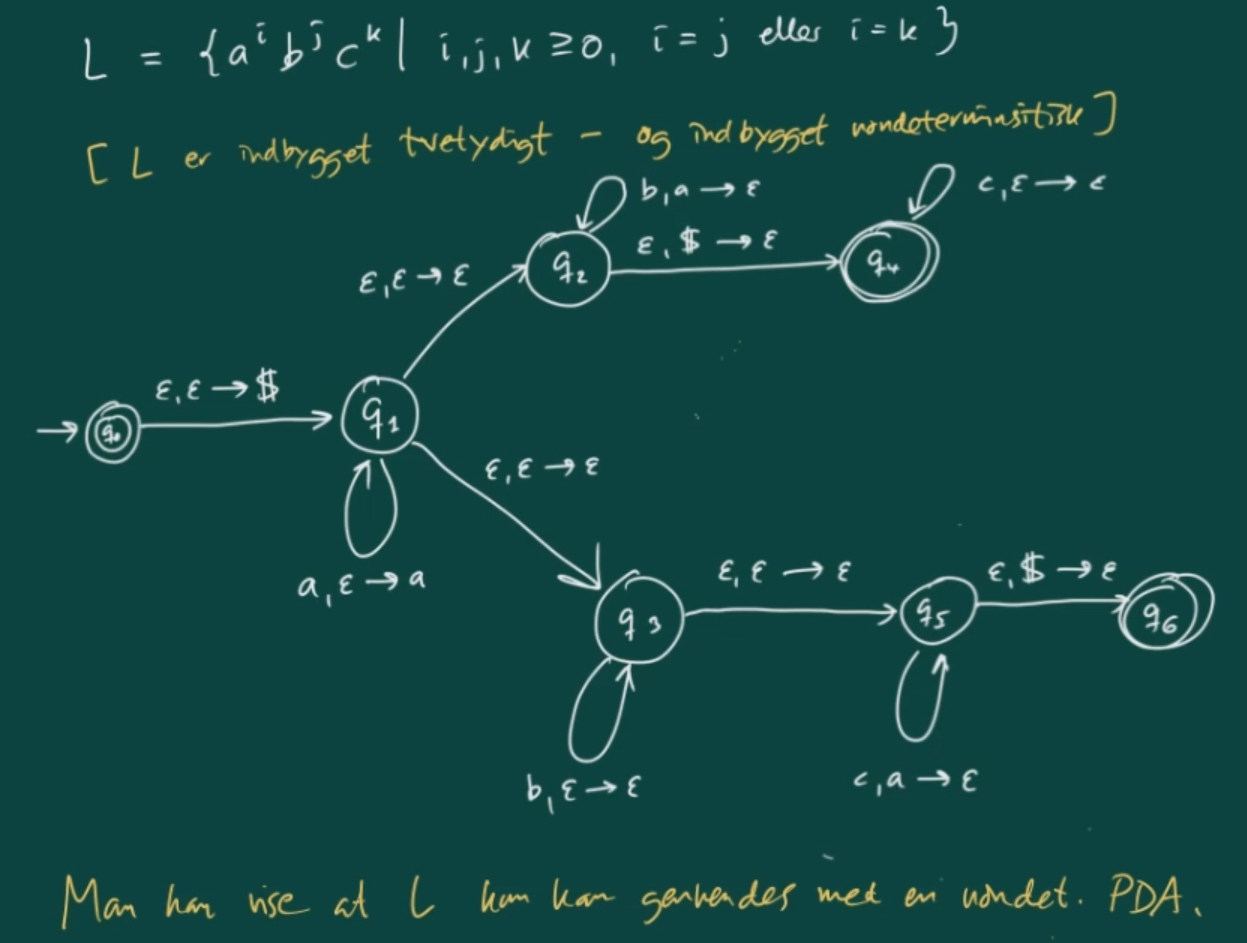 L = {aⁱ bʲ cᵏ | i, j, k ≥ 0, i = j eller i = k }
[ L er indbygget tvetydigt – og indbygget nondeterminsitisk ]
b, a → ε
c, ε → ε
ε, $ → ε
q₂
q₄
ε, ε → ε
ε, ε → $
q₀
q₁
ε, ε → ε
a, ε → a
ε, ε → ε
ε, $ → ε
q₃
q₅
q₆
b, ε → ε
c, a → ε
Man kan vise at L kun kan genkendes med en nondet. PDA.